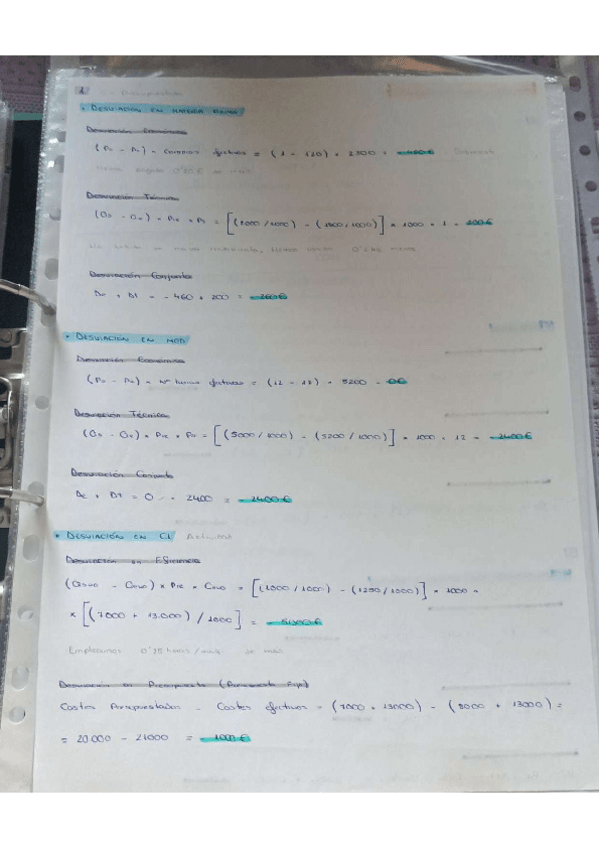 1
• DESVIACIÓN EN MATERIA PRIMA
Desviación Económica
(Po - Pr) × Compras efectivas = (1 - 1'20) × 2300 = - 460€
Hemos pagado 0'20€ de más
Desviación Técnica
(Qo - Qr) × Pre × Po = [(2000 / 1000) - (1800 / 1000)] × 1000 × 1 = 200€
Desviación Conjunta
De + Dt = - 460 + 200 = - 260€
• DESVIACIÓN EN MOD
Desviación Económica
(Po - Pr) × Nº horas efectivas = (12 - 12) × 5200 = 0€
Desviación Técnica
(Qo - Qr) × Pre × Po = [(5000 / 1000) - (5200 / 1000)] × 1000 × 12 = - 2400€
Desviación Conjunta
De + Dt = 0 - 2400 = - 2400€
• DESVIACIÓN EN CI
Desviación en Eficiencia
× Pre × = [(1000 / 1000) - (1250 / 1000)] × 1000 ×
× [(7000 + 13.000) / 1000] = - 5000€
Empleamos 0'25 horas/ más
Desviación en Presupuesto (Presupuesto Fijo)
Costes Presupuestados - Costes efectivos = (7000 + 13000) - (8000 + 13000) =
= 20.000 - 21000 = - 1000€